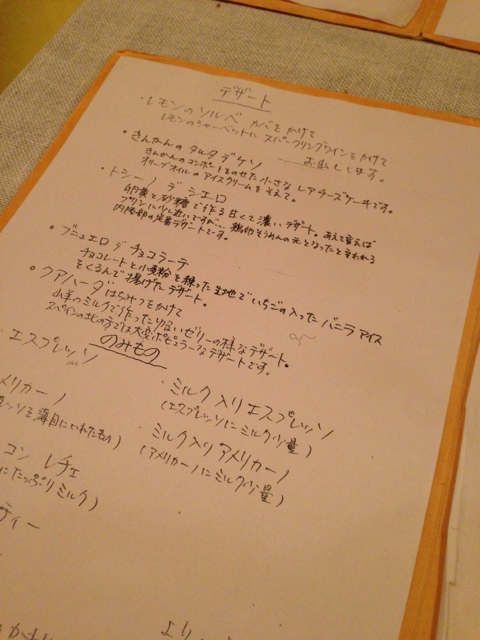 デザート
・レモンのソルベ カバをかけて
レモンのシャーベットに スパークリングワインをかけて
お出しします。
・きんかんのタルタ デ ケソ
きんかんのコンポートをのせた小さなレアチーズケーキです。
オリーブオイルのアイスクリームをそえて。
・トシーノ デ シエロ
卵黄と砂糖で作る甘くて濃いデザート。あえて言えば
プリンに少し近いですが… 鶏卵そうめんの元となったと言われる
内陸部の定番デザートです。
・ブニュエロ デ チョコラーテ
チョコレートと小麦粉を練った生地でいちご入ったバニラアイス
をくるんで揚げたデザート。
・クアハーダ はちみつをかけて
山羊のミルクで作ったゆるいゼリーの様なデザート。
スペインの北の方では大変ポピュラーなデザートです。
のみもの
・エスプレッソ
ミルク入りエスプレッソ
(エスプレッソにミルク少量)
メリカーノ
を薄目にいれたもの)
ミルク入りアメリカーノ
(アメリカーノにミルク少量)
コン レチェ
にたっぷりミルク)
ティー